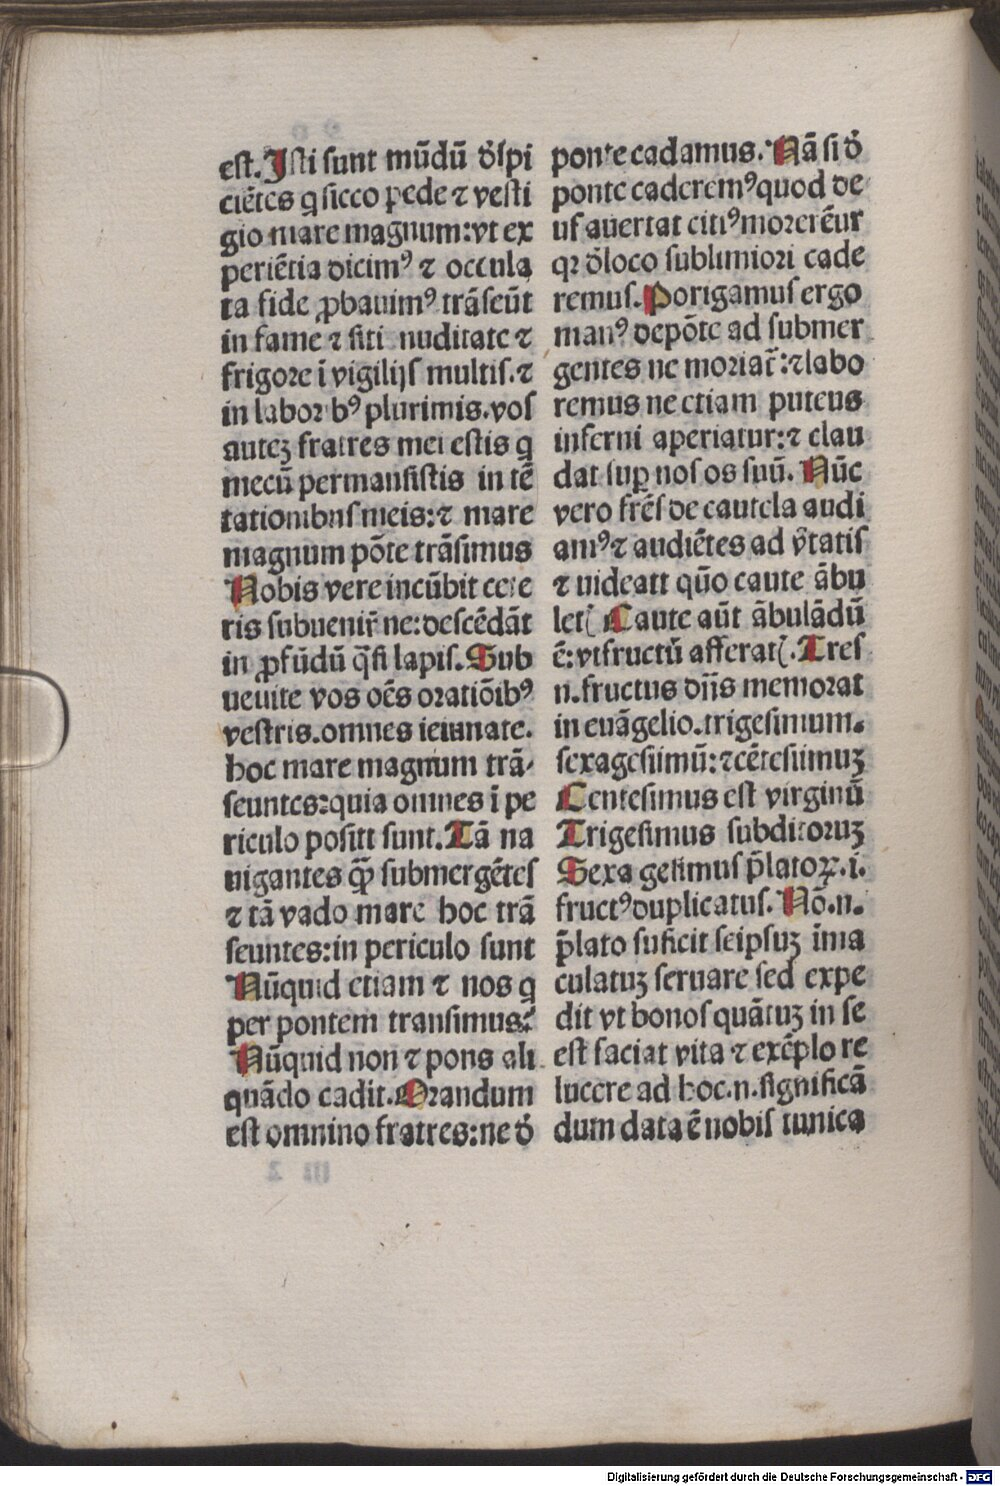 est. Isti sunt mūdū ꝺ̄spi
ciētes q sicco pede ⁊ vesti
gio mare magnum: vt ex
periētia dicimꝰ ⁊ occula
ta fide ꝓbauimꝰ trāseūt
in fame ⁊ siti nuditate ⁊
frigore ī vigilijs multis. ⁊
in laborbꝰ plurimis. vos
auteꝫ fratres mei estis q
mecū permansistis in tē
tationibus meis: ⁊ mare
magnum pōte trāsimus
Nobis vere incūbit cete
ris subuenir̄ ne: descēdāt
in ꝓfūdū q̄si lapis. Sub
ueuite vos oēs oratiōibꝰ
vestris. omnes ieiunate.
hoc mare magnum trā-
seuntes: quia omnes ī pe
riculo positi sunt. Tā na
uigantes qꝫ̄ submergētes
⁊ tā vado mare hoc trā
seuntes: in periculo sunt
Nūquid etiam ⁊ nos q
per pontem transimus?
Nūquid non ⁊ pons ali
quādo cadit. Orandum
est omnino fratres: ne ꝺ̄
ponte cadamus. Nā si ꝺ̄
ponte caderemꝰ quod de
us auertat citiꝰ morerēur
qꝛ ꝺ̄ loco sublimiori cade
remus. Porigamus ergo
manꝰ de pōte ad submer
gentes ne moriat̄: ⁊ labo
remus ne etiam puteus
inferni aperiatur: ⁊ clau
dat suꝑ nos os suū. Nūc
vero frēs de cautela audi
amꝰ ⁊ audiētes ad v̄tatis
⁊ uideatt quō caute ābu
let̄ Caute aūt ābulādū
ē: vt fructū afferat̄. Tres
n. fructus dn̄s memorat
in euāgelio. trigesimum.
sexagesimū: ⁊ cētesimuꝫ
Centesimus est virginū
Trigesimus subditoruꝫ
Sexa gesimus p̄latoꝝ. i.
fructꝰ duplicatus. Nō. n.
p̄lato suficit seipsuꝫ īma
culatuꝫ seruare sed expe
dit vt bonos quātuꝫ in se
est faciat vita ⁊ exēplo re
lucere ad hoc. n. significā
dum data ē nobis tunica
Digitalisierung gefördert durch die Deutsche Forschungsgemeinschaft - DFG